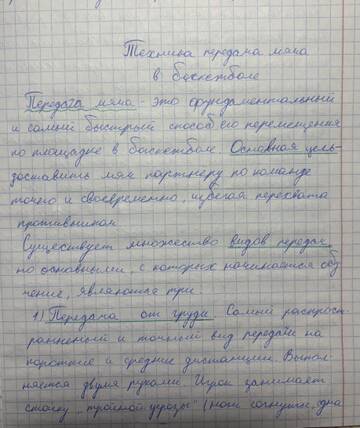 Техника передача мяча
в баскетболе
Передача мяча - это фундаментальный
и самый быстрый способ его перемещения
по площадке в баскетболе. Основная цель-
доставить мяч партнеру по команде
точно и своевременно, избегая перехвата
противником.
Существует множество видов передач,
но основными, с которых начинается обу
чение, являются три:
1) Передача от груди. Самый распрост
раненный и точный вид передачи на
короткие и средние дистанции. Выпол-
няется двумя руками. Игрок занимает
стойку "тройной угрозы" (ноги согнуты, одна